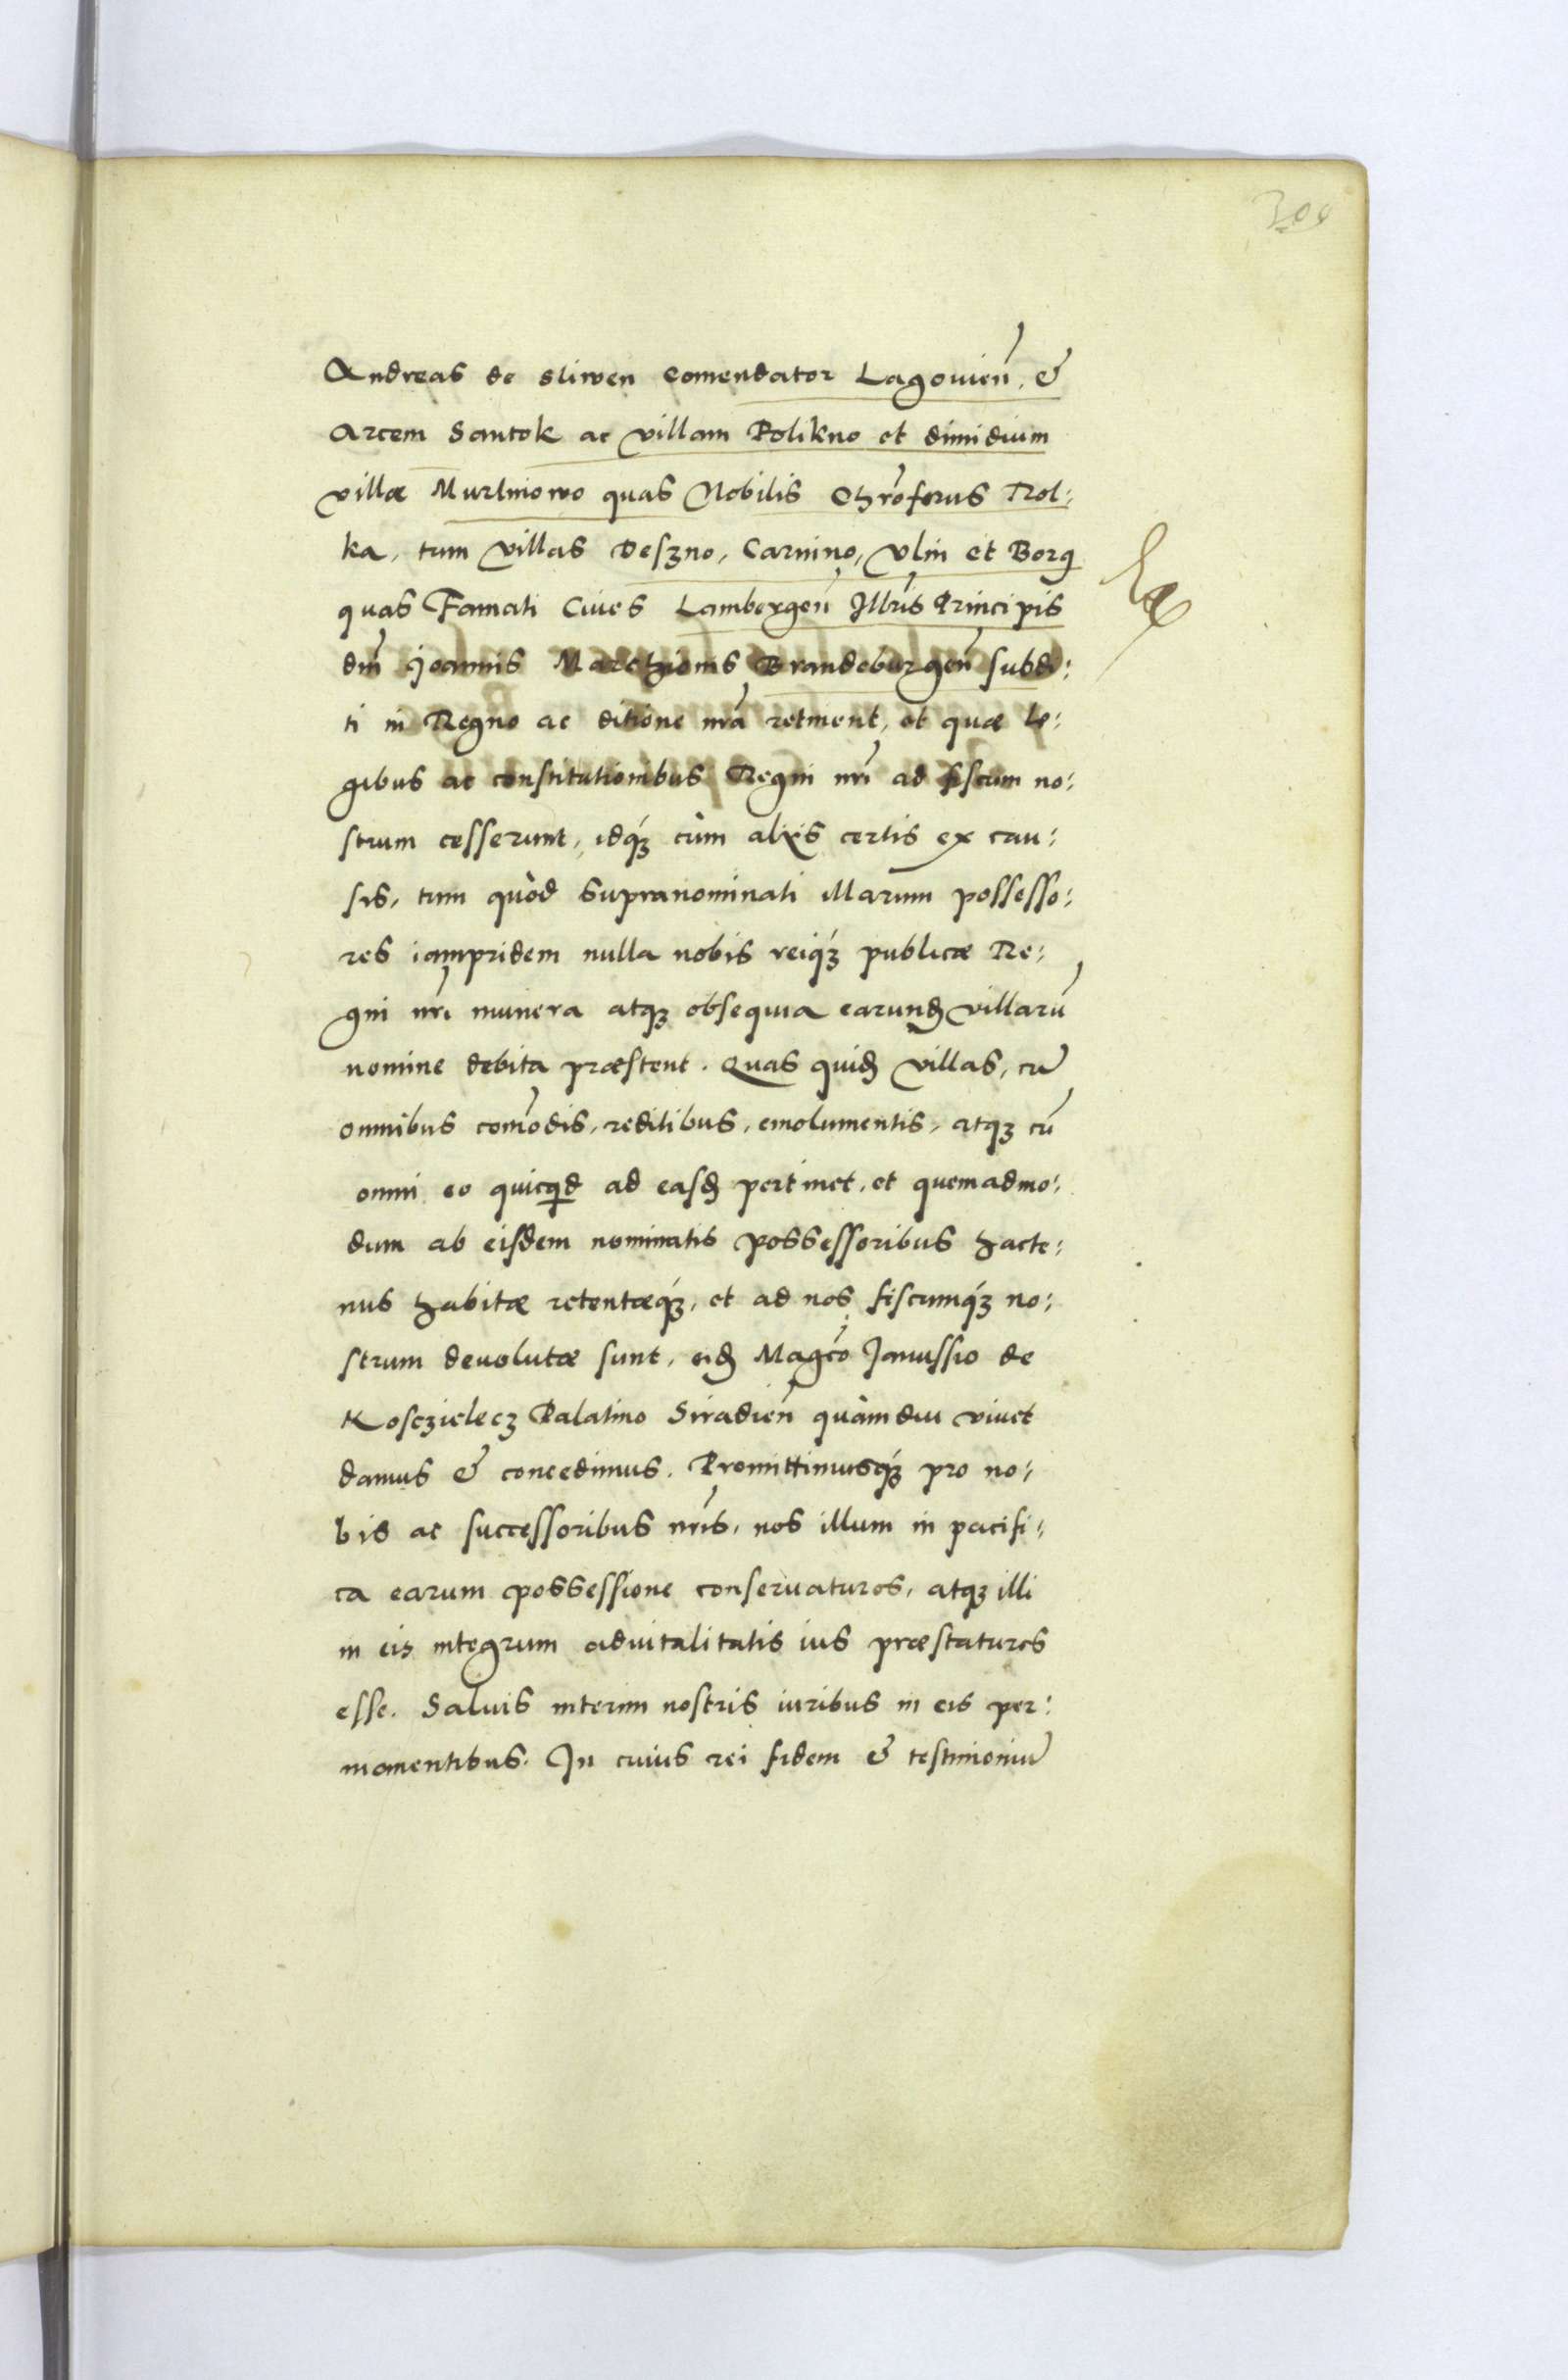 309
Andreas de Sliwen Comendator Lagovień, &
Arcem Santok ac villam Polikno et dimidium
villæ Murlinowo quas Nobilis Chrõferus Pol:
ka, tum villas Deszno, Carnino, Ulin et Borg
quas Famati Cives Lambergeñ Illr̃is Principis
dñi Joannis Marchionis Brandeburgeñ subdi:
ti in Regno ac ditione nr̃a retinent, et quæ le:
gibus ac constitutionibus Regni nr̃i ad fiscum no:
strum cesserunt, idq́ꝫ cùm alijs certis ex cau:
sis, tum quòd supranominati illarum possesso:
res iampridem nulla nobis reiq́ꝫ publicæ Re:
gni nr̃i munera atqꝫ obsequia earunđ villarũ
nomine debita præstent. Quas quiđ villas, cũ
omnibus com̃odis, reditibus, emolumentis, atqꝫ cũ
omni eo quicqd ad easđ pertinet, et quemadmo:
dum ab eisdem nominatis possessoribus hacte:
nus habitæ retentæq́ꝫ, et ad nos fiscumq́ꝫ no:
strum devolutæ sunt, eiđ Magcõ Janussio de
Kosczielecz Palatino Siradień quàmdiu vivet
damus & concedimus. Promittimusq́ꝫ pro no:
bis ac successoribus nr̃is, nos illum in pacifi:
ca earum possessione conservaturos, atqꝫ illi
in eis integrum advitalitatis ius præstaturos
esse. Salvis interim nostris iuribus in eis per:
manentibus. In cuius rei fidem & testimoniũ